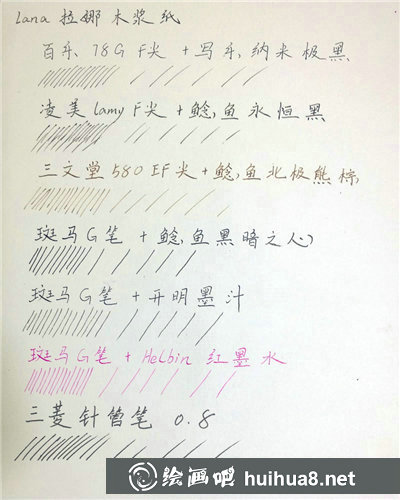 lana 拉娜 木浆纸
百乐 78G F尖 + 写乐,纳米极黑
凌美 lamy F尖 + 鲶,鱼永恒黑
三文堂 580 EF尖 + 鲶,鱼北极熊棕,
斑马G笔 + 鲶,鱼黑暗之心
斑马G笔 + 开明墨汁
斑马G笔 + Helbin 红墨水
三菱针管笔 0.8
绘画吧 huihua8.net